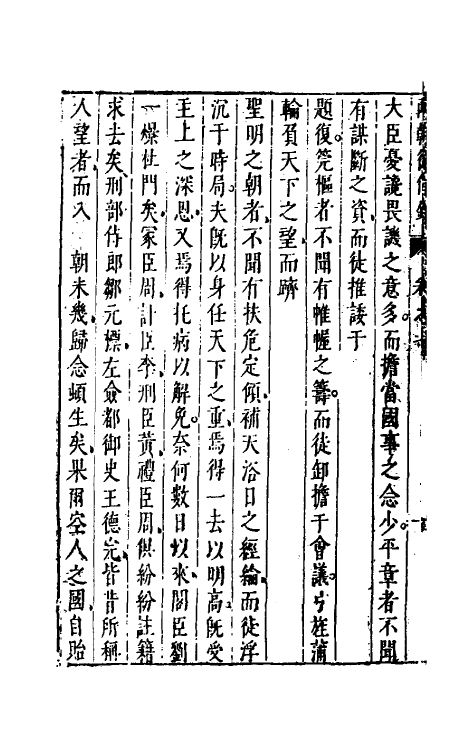 大臣憂讒畏譏之意多而擔當國事之念少平章者不聞
有謀斷之資而徒推諉于
題復筦樞者不聞有帷幄之籌而徒卸擔于會議弓旌蒲
輪負天下之望而躋
聖明之朝者不聞有扶危定傾補天浴日之經綸而徒浮
沉于時局夫既以身任天下之重焉得一去以明高既受
主上之深恩又焉得托病以解免奈何數日以來閣臣劉
一燝杜門矣冢臣周計臣李刑臣黃禮臣周俱紛紛註籍
求去矣刑部侍郎鄒元標左僉都御史王德完皆昔所稱
人望者而入 朝未幾歸念頓生矣果爾空人之國自貽